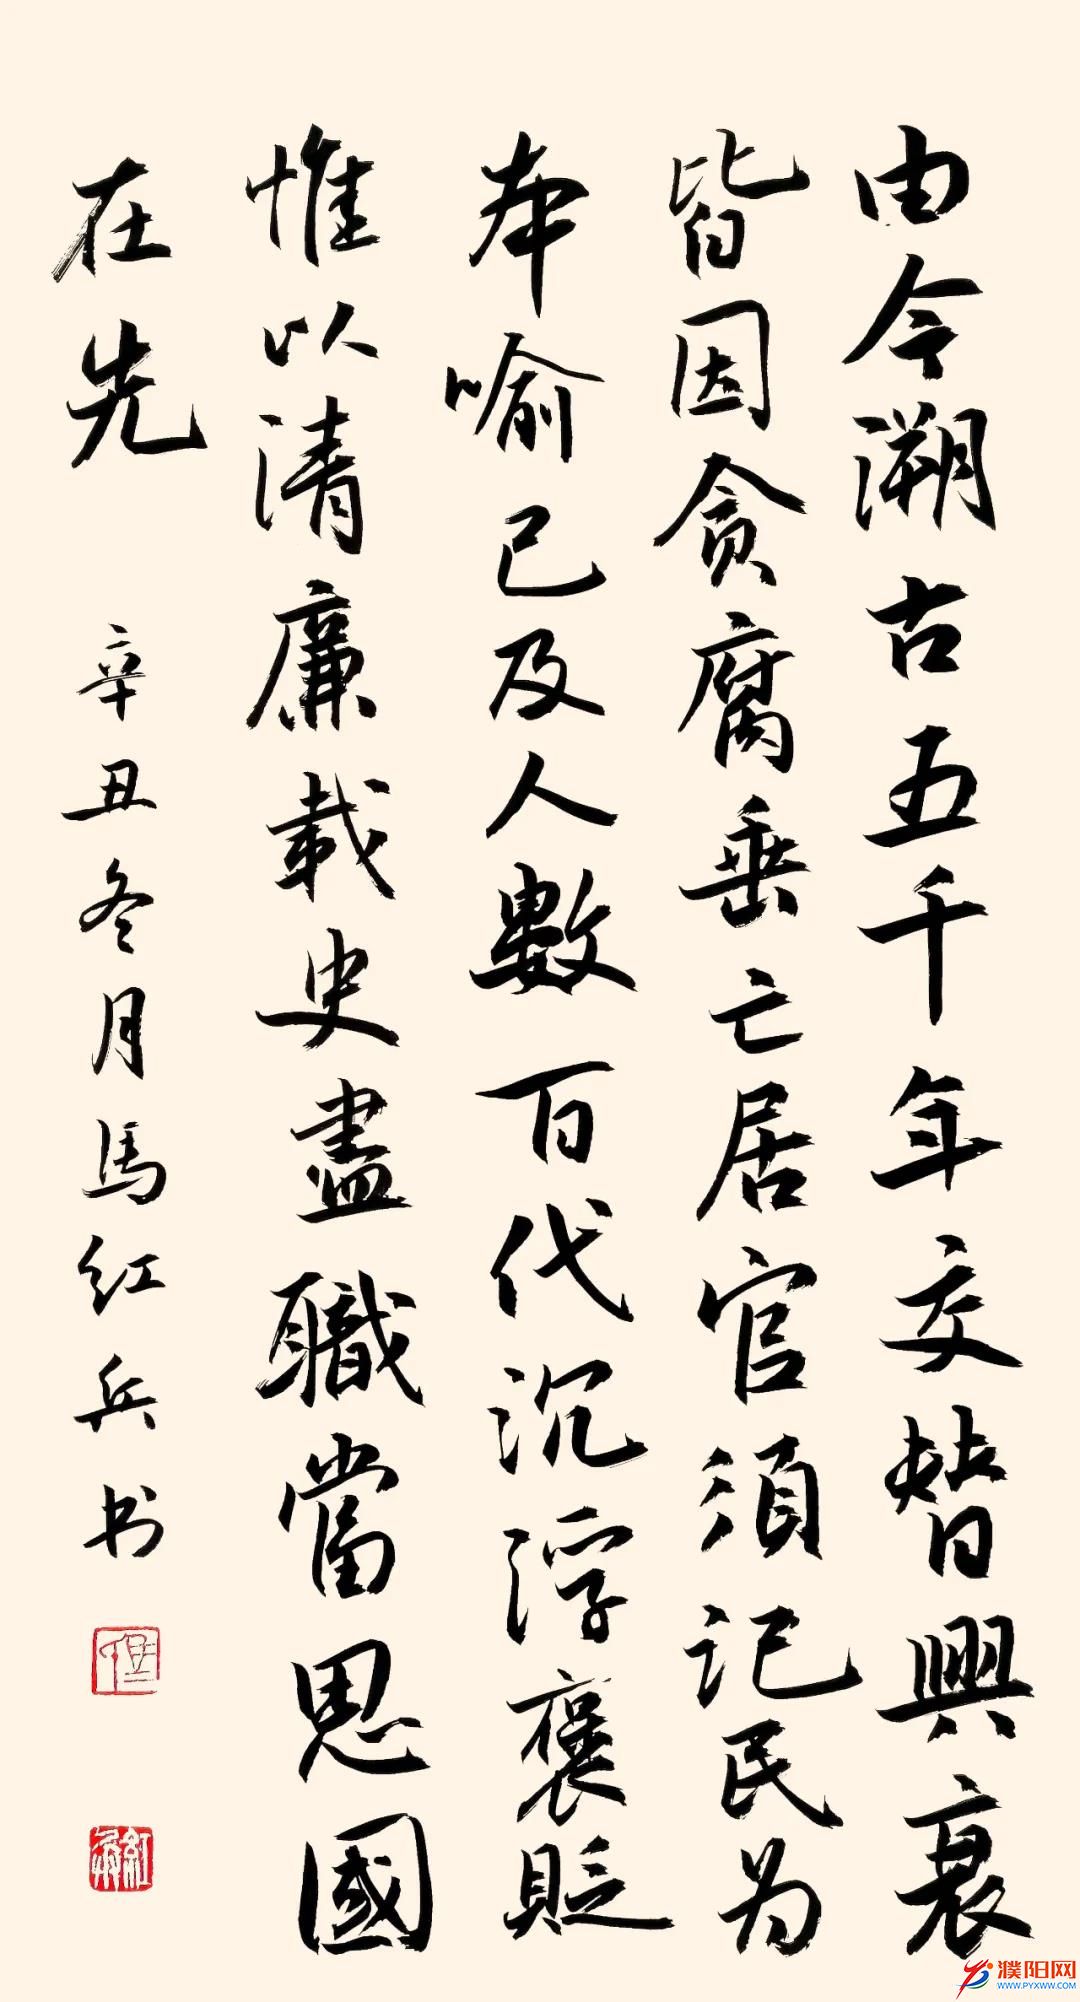 由今溯古五千年交替興衰
皆因贪腐垂亡居官须记民为
本喻己及人數百代沉浮褒貶
惟以清廉載史盡職當思國
在先
辛丑冬月馬红兵书
濮阳网
WWW.PYXWW.COM